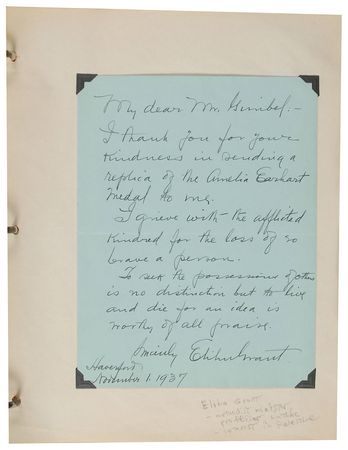 My dear Mr. Gimbel:-
I thank you for your
kindness in sending a
replica of the Amelia Earhart
Medal to me.
I grieve with the afflicted
kindred for the loss of so
brave a person.
To seek the possessions of others
is no distinction but to live
and die for an idea is
worthy of all praise.
Sincerely Elihu Grant
Haverford
November 1. 1937
Elihu Grant